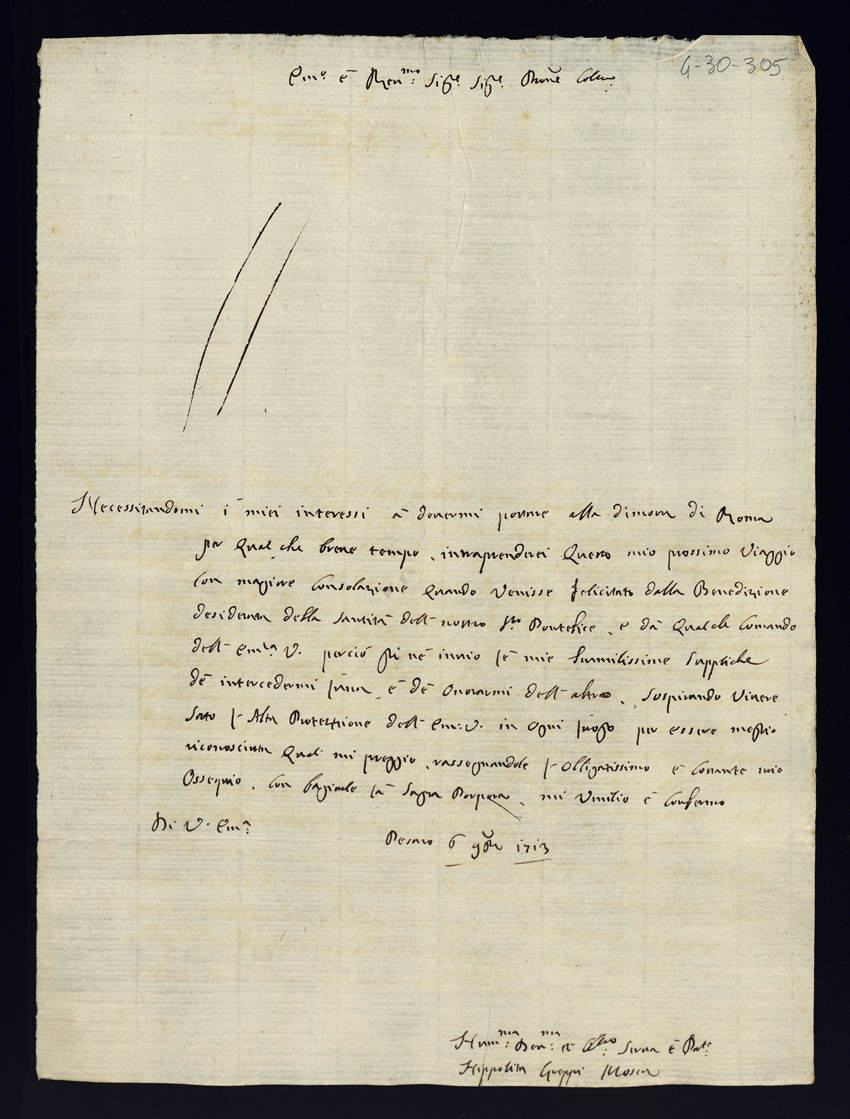 4-30-305
Em.º è Rev.mo Sig.r Sig.r Prone Colmo
Necessitandomi i miei interessi à dovermi portare alla dimora di Roma
per qual che breve tempo, intraprenderei questo mio prossimo viaggio
con magiore consolazione quando venisse felicitato dalla Benedizione
desiderata della Santità dell nostro S.to Pontefice, e dà qualche comando
dell Em.za V. perciò gli nè invio le mie humilissime suppliche
dè intercedermi l'una, è dè onorarmi dell altro, sospirando vivere
sotto l'Alta Protettione dell Em: V. in ogni luogo per essere meglio
riconosciuta qual mi preggio, rassegnandole l'obligatissimo è costante mio
ossequio, con bagiarle la Sagra Porpora, mi umilio è confermo
Di V. Em.a
Pesaro 6 9bre 1713
Hum.ma Dev.ma et Obl.ma Serva è
Hippolita Mosca